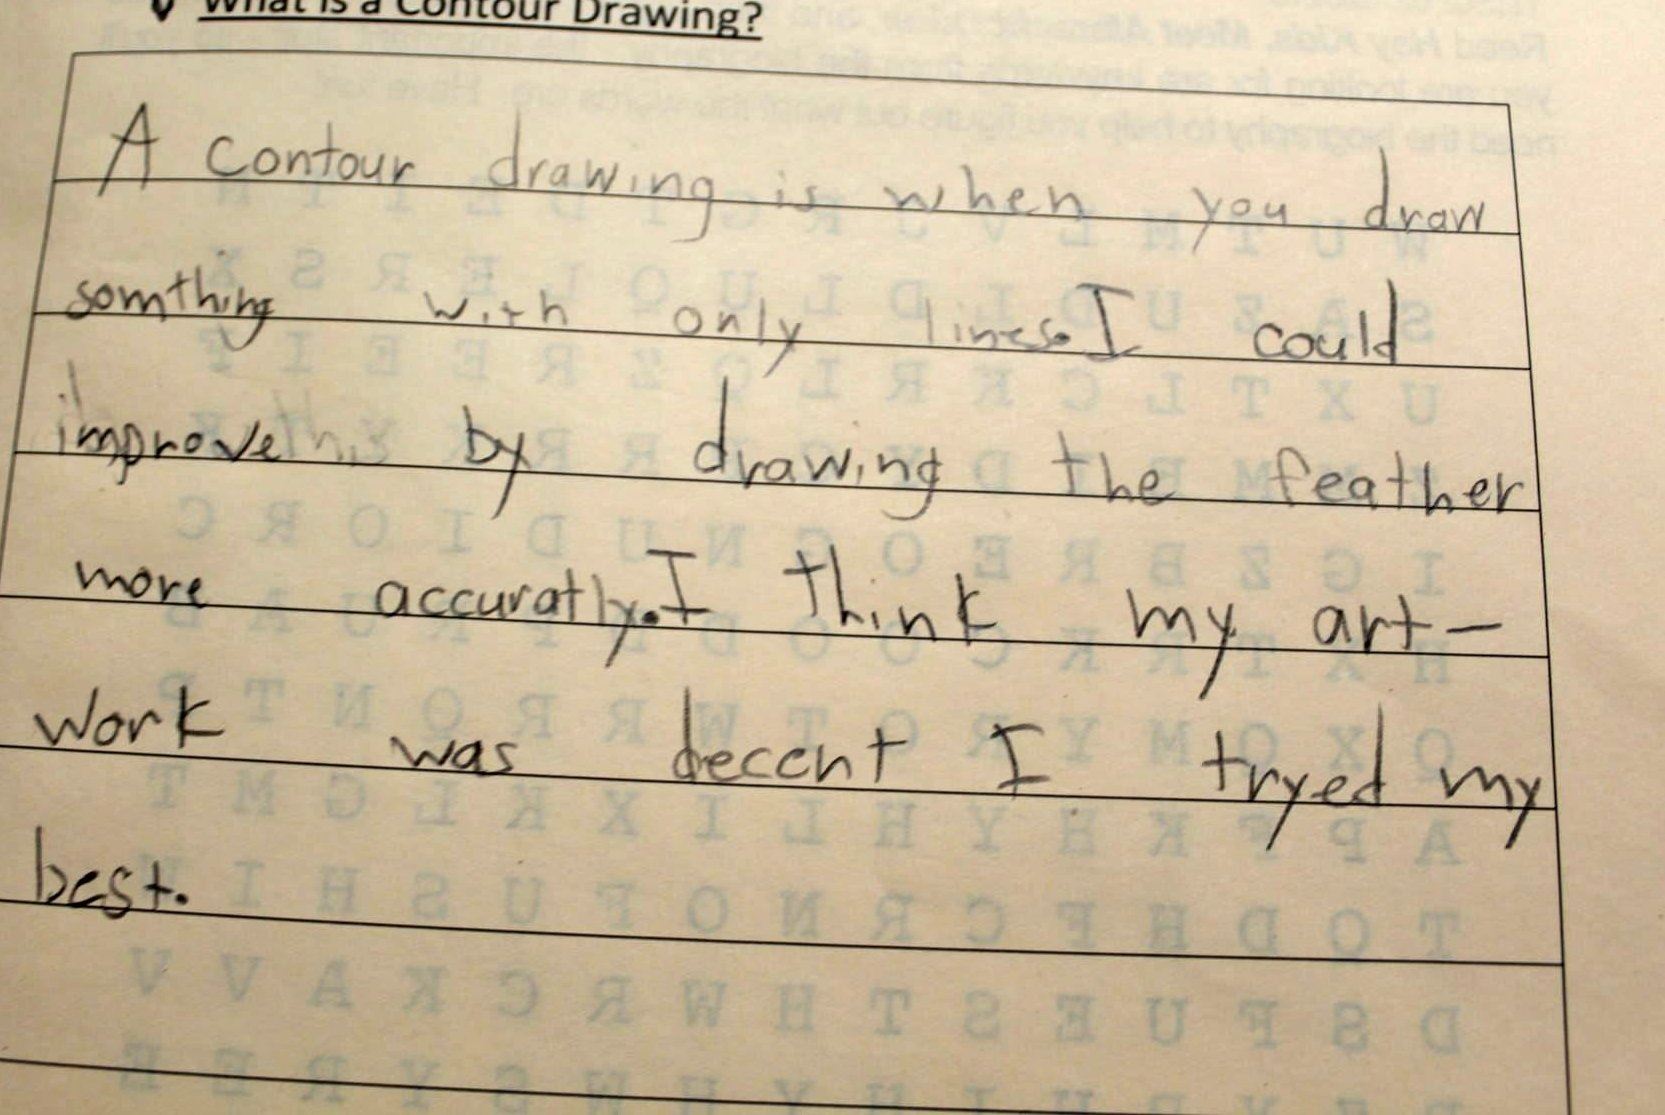 What is a Contour Drawing?
A contour drawing is when you draw
somthing with only lines. I could
improve this by drawing the feather
more accuratly. I think my art-
work was decent I tryed my
best.